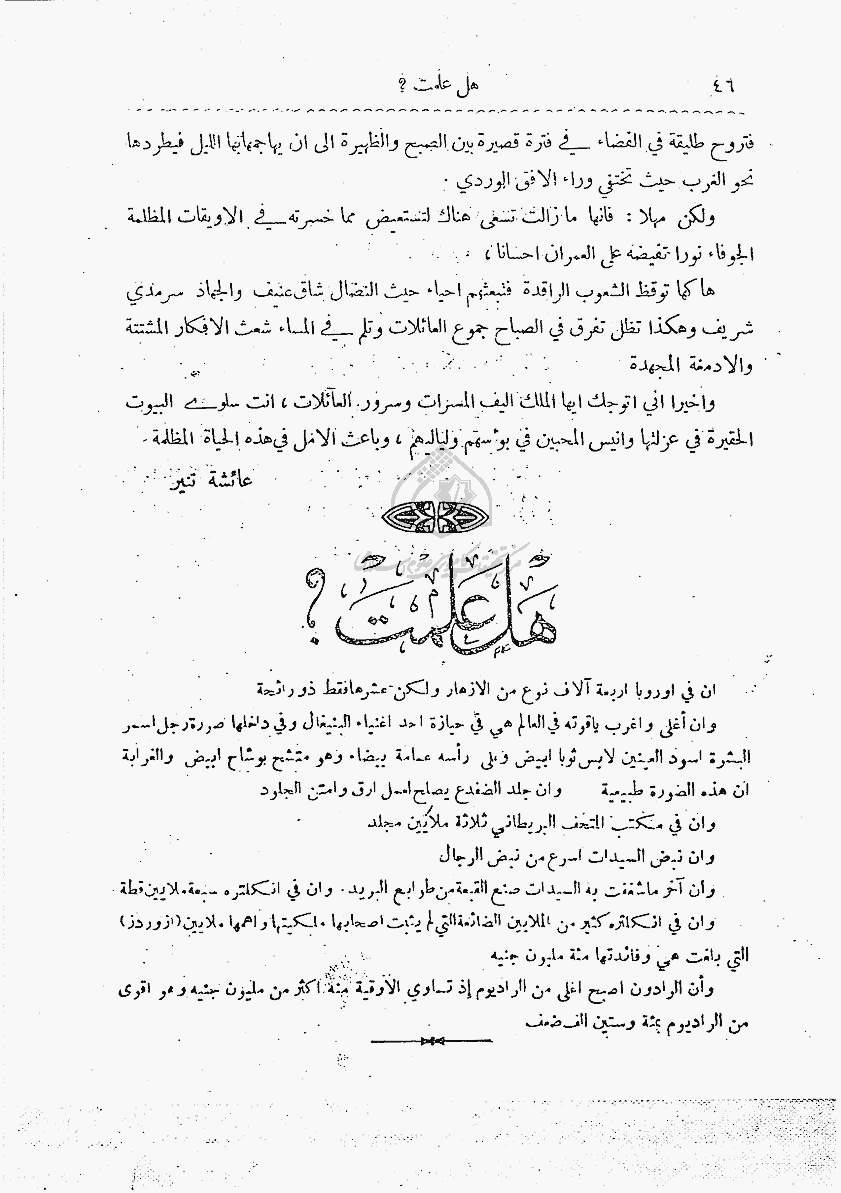 ٤٦
هل علمت ؟
فتروح طليقة في الفضاء في فترة قصيرة بين الصبح والظهيرة الى ان يهاجمهانها الليل فيطردها
نحو الغرب حيث تختفي وراء الافق الوردي .
ولكن مهلا : فانها ما زالت تسعى هناك لتستعيض مما خسرته في الاويقات المظلمة
الجوفاء نورا تفيضه على العمران احسانا ،
ها كها توقظ الشعوب الراقدة فتبعثهم احياء حيث النضال شاق عنيف والجهاد سرمدي
شريف وهكذا تظل تفرق في الصباح جموع العائلات وتلم في المساء شعث الافكار المشتتة
والادمغة المجهدة
واخيرا اني اتوجك ايها الملك اليف المسرات وسرور العائلات ، انت سلوى البيوت
الحقيرة في عزلتها وانيس المحبين في بوأسهم ولياليهم ، وباعث الامل في هذه الحياة المظلمة .
عائشة تنير
هَل عَلِمْتَ ؟
ان في اوروبا اربعة آلاف نوع من الازهار ولكن عشرها فقط ذو رائحة
وان أغلى واغرب ياقوته في العالم هي في حيازة احد اغنياء البنيغال وفي داخلها صورة رجل اسمر
البشرة اسود العينين لابس ثوبا ابيض وعلى رأسه عمامة بيضاء وهو متشح بوشاح ابيض والغرابة
ان هذه الصورة طبيعية وان جلد الضفدع يصلح لعمل ارق وامتن الجلود
وان في مكتب المتحف البريطاني ثلاثة ملايين مجلد
وان نبض السيدات اسرع من نبض الرجال
وأن آخر ما شغفت به السيدات صنع القبعة من طوابع البريد . وان في انكلتره سبعة ملايين قطة
وان في انكلتره كثير من الملايين الضائعة التي لم يثبت اصحابها ملكيتها واهمها ملايين (ازوردز)
التي بلغت هي وفائدتها مئة مليون جنيه
وأن الرادون اصبح اغلى من الراديوم إذ تساوي الاوقية منه اكثر من مليون جنيه وهو اقوى
من الراديوم بمئة وستين الف ضعف